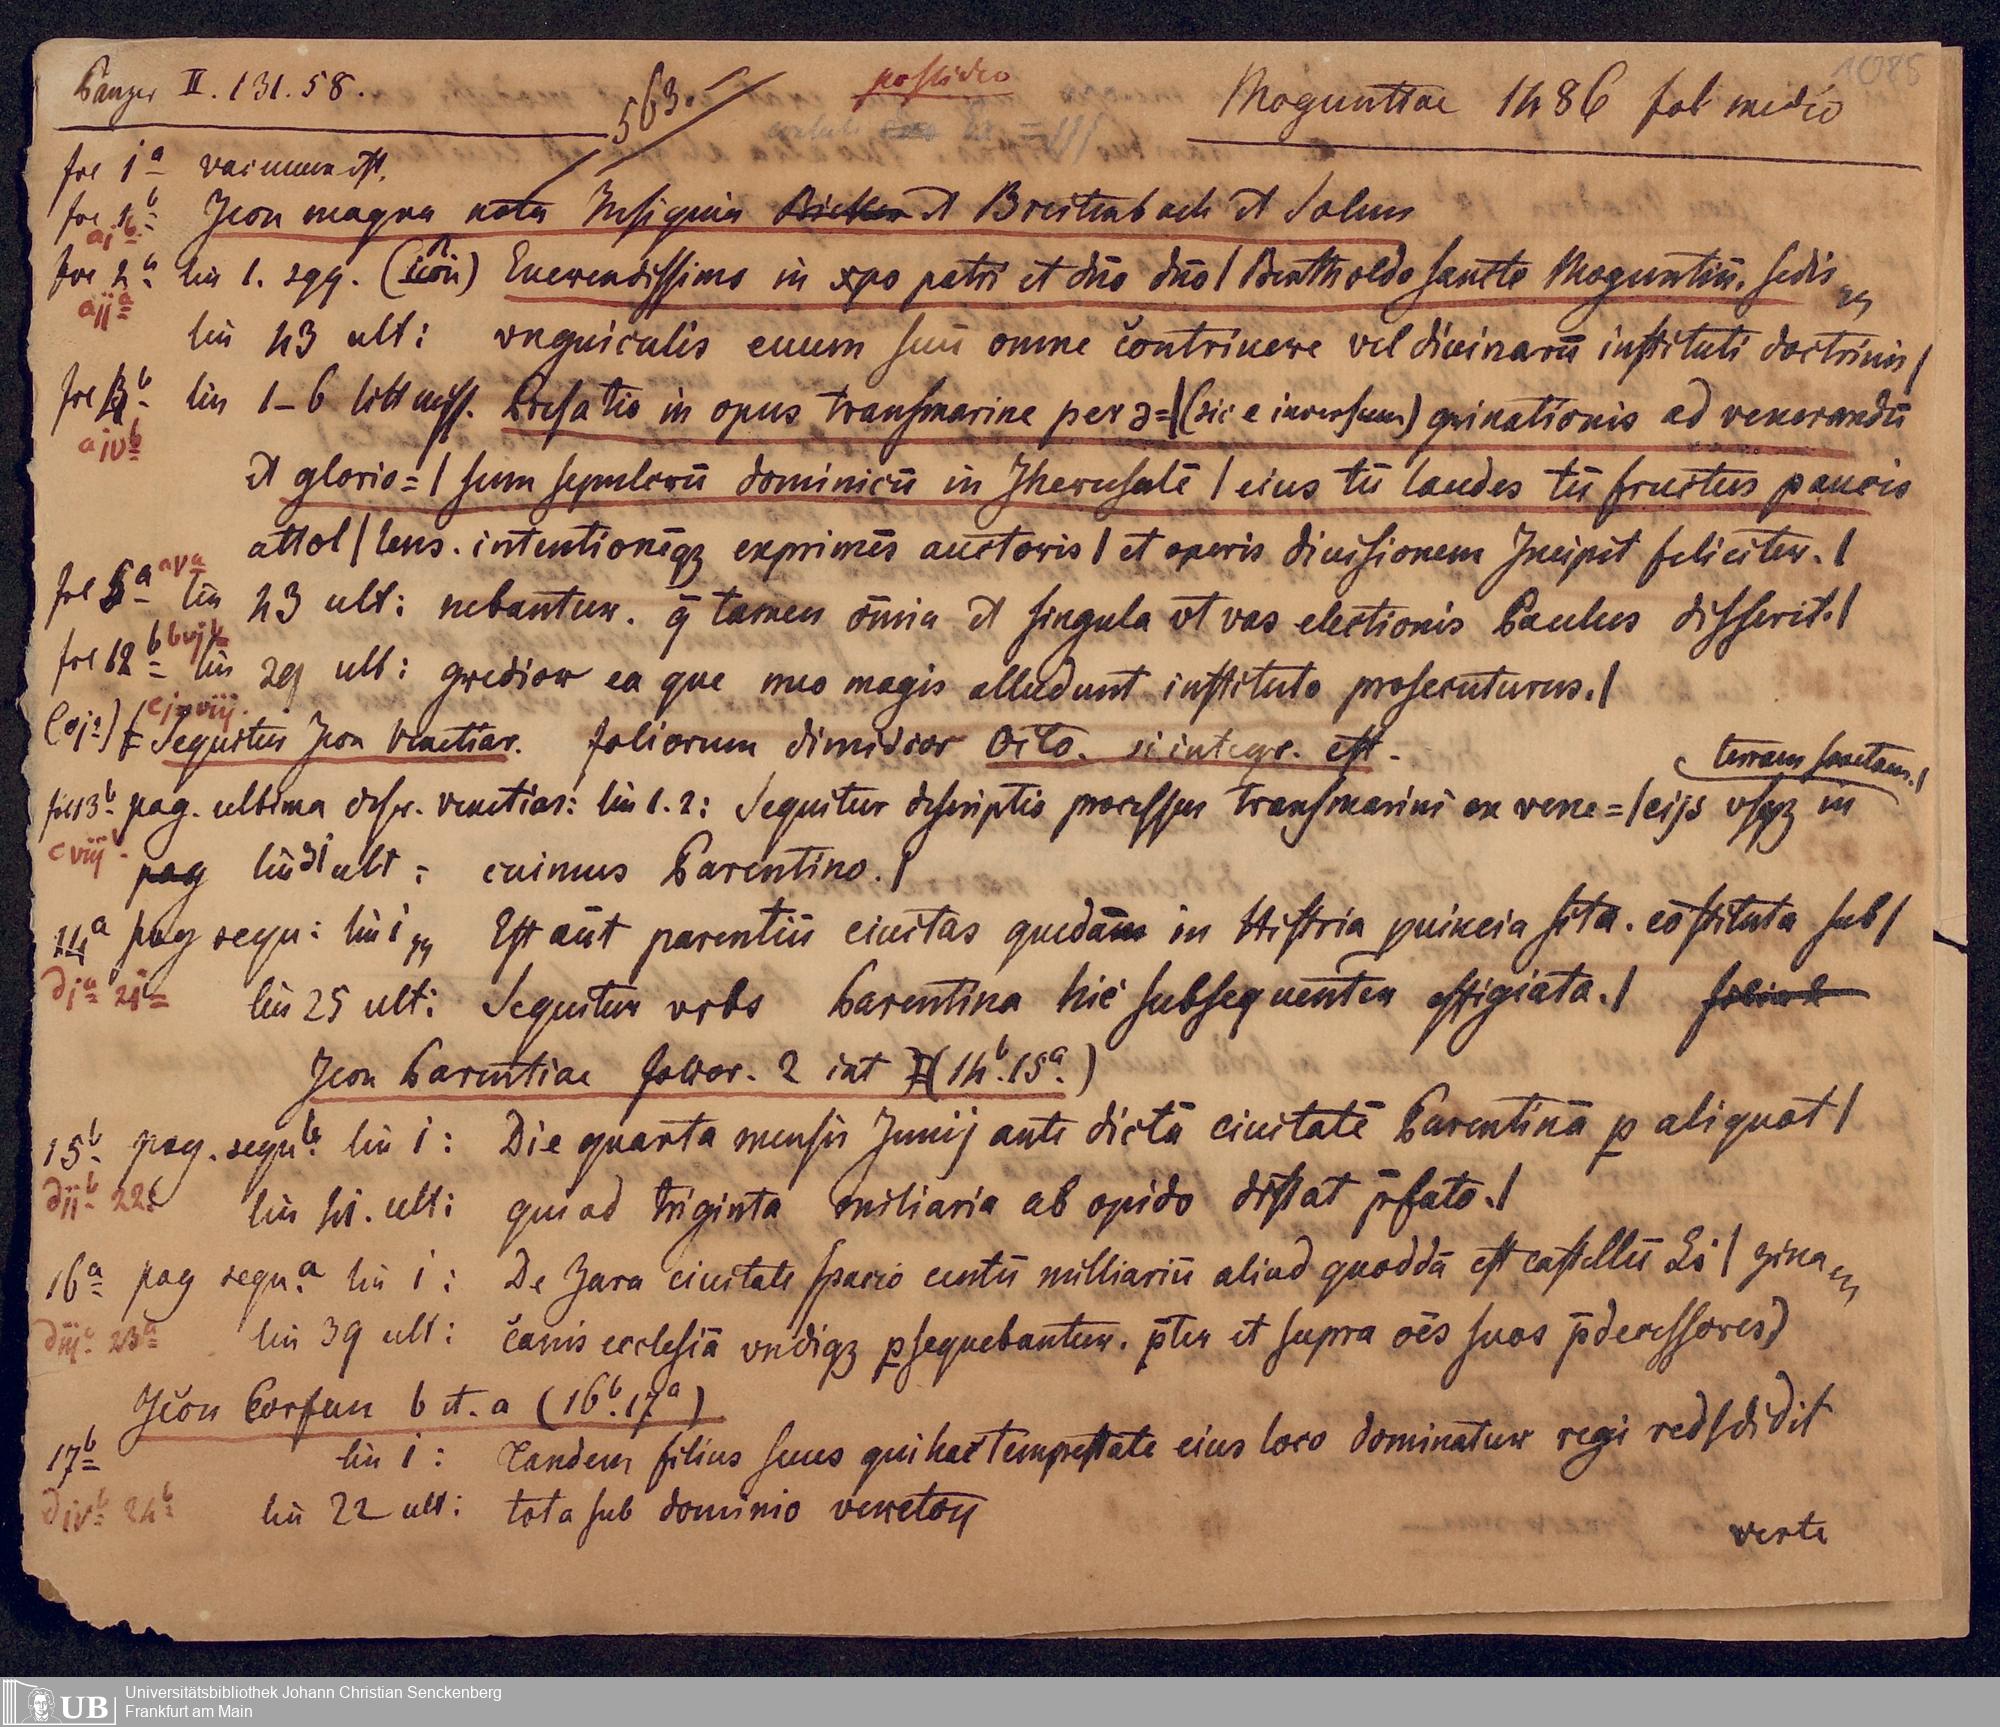 Panzer II. 131. 58.
563.
possideo
Moguntiae 1486 fol medio
1085
fol 1a vacuum est.
fol 1b Icon magna nota Insignia Bicken et Breitenbach et Solms
ai b
fol 2a lin 1. sqq. (icon) Reuerendissimo in xpo patri et dño dño / Bertholdo sancte Moguntiñ. sedis
aij a
lin 43 ult: vnguiculis euum suū omne contriuere vel diuinarū instituti doctrinis /
fol 4b lin 1-6 litt miss. Prefatio in opus transmarine per ə=/(sic e inversum) grinationis ad venerandū
aiv b
et glorio=/ sum sepulcrū dominicū in Iherusalē / eius tū laudes tū fructus paucis
attol / lens. intentionēqz exprimēs auctoris / et operis diuisionem Incipit feliciter. /
fol 5a ava lin 43 ult: nebantur. q̄ tamen oīnia et singula vt vas electionis Paulus disserit. /
fol 12b bvj b lin 29 ult: gredior ea que meo magis alludunt instituto prosecuturus. /
cj-viij.
Sequitur Icon Venetiar. foliorum dimidior Octo. si integr. est.
terram sanctam. /
fol 13b pag. ultima descr. venetias: lin 1. 2: Sequitur descriptio processus transmarini ex vene=/cijs vsqz in
cviij b.
pag lin 31 ult: cuimus Parentino. /
14a pag sequ: lin i Est aūt parentiū ciuitas quedam in Histria puincia sita. cōstituta sub /
di a 21a
lin 25 ult: Sequitur vrbs Parentina hic subsequenter effigiata. /
Icon Parentiae folior. 2 int (14b. 15a.)
15b pag. sequ b lin i: Die quarta mensis Junij ante dictā ciuitatē Parentinā p aliquot /
dij b 22b
lin 41. ult: qui ad triginta miliaria ab opido distat p̄fato. /
16a pag sequ. a lin i: De Zara ciuitate spacio centū milliariū aliud quoddā est castellū Li / zina
diij a 23a
lin 39 ult: canis ecclesiā vndiqz psequebantur. p̄ter et supra oēs suos p̄decessores)
Icon Corfun b et. a (16b. 17a)
17b lin i: Tandem filius suus qui hac tempestate eius loco dominatur regi red/didit
div b 24b
lin 22 ult: tota sub dominio venetoꝝ
verte
UB
Universitätsbibliothek Johann Christian Senckenberg
Frankfurt am Main